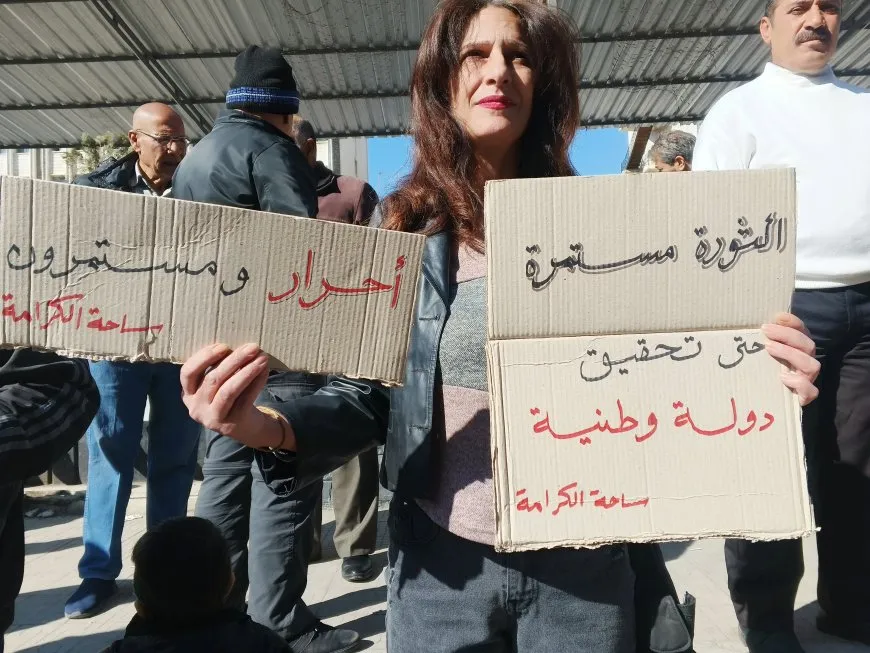 أحرار ومستمرون
ساحة الكرامة
الثورة مستمرة
حتى تحقيق
دولة وطنية
ساحة الكرامة